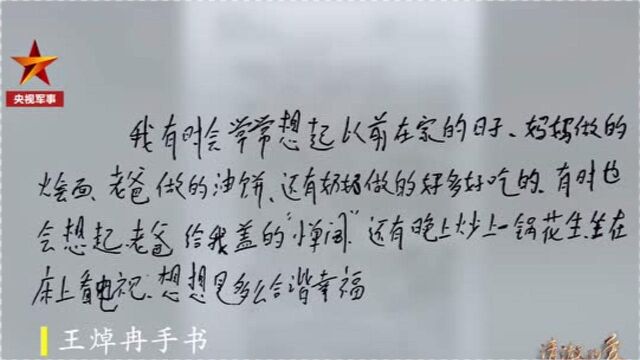 央视军事
我有时会常常想起以前在家的日子、妈妈做的
烩面、老爸做的油饼、还有奶奶做的好多好吃的、有时也
会想起、老爸给我盖的“单间”还有晚上炒上一锅花生、坐在
床上看电视、想想是多么合谐幸福
王焯冉手书